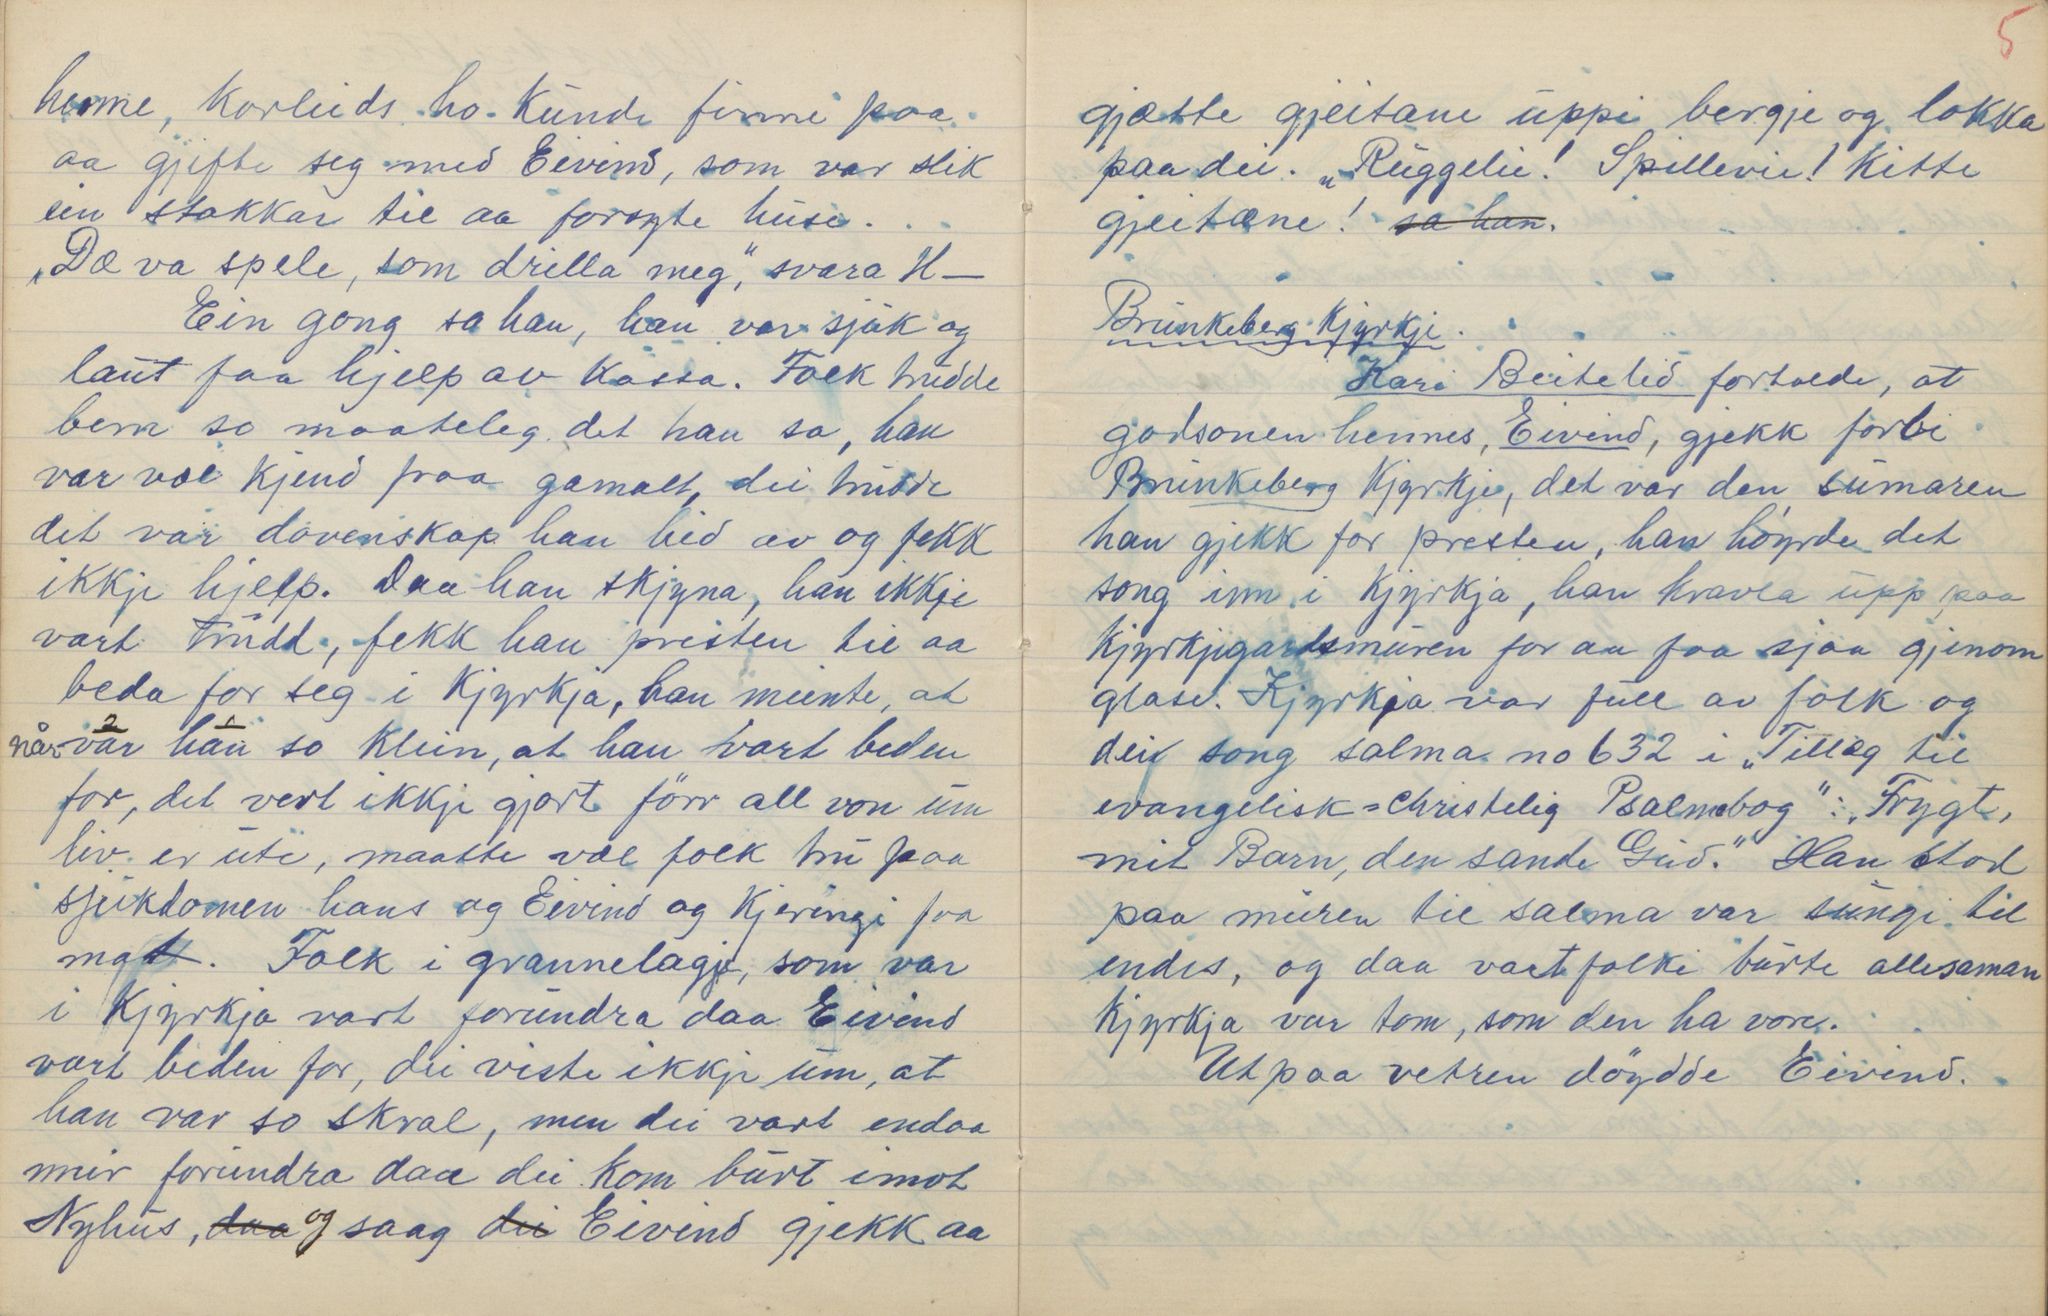 henne, korleids ho kunde finne paa
aa gjifte seg med Eivind, som var slik
ein stakkar til aa forsyte huse.
„Dæ va spele, som drilla meg", svara H—
Ein gong sa han, han var sjuk og
laut faa hjelp av kassa. Folk trudde
bern so maateleg det han sa, han
var væl kjend paa gamalt, dei trudde
det var dovenskap han leid av og fekk
ikkje hjelp. Daa han skjyna, han ikkje
vart trudd, fekk han presten til aa
beda for seg i kjyrkja, han meinte, at
når var han so klein, at han vart beden
for, det vert ikkje gjort förr all von um
liv er ute, maatte væl folk tru paa
sjukdomen hans og Eivind og kjeringi faa
mat. Folk i grannelagje, som var
i kjyrkja vart forundra daa Eivind
vart beden for, dei viste ikkje um, at
han var so skral, men dei vart endaa
meir forundra daa dei kom burt imot
Nyhus, daa og saag dei Eivind gjekk aa
5
gjætte gjeitane uppi bergje og lokka
paa dei. „Ruggelei! Spillevei! Kitte
gjeitæne! sa han.
Brunkeberg Kjyrkje.
Kari Beitelid fortalde, at
godsonen hennes, Eivind, gjekk forbi
Brunkeberg Kjyrkje, det var den sumaren
han gjekk for presten, han höyrde det
song inn i kjyrkja, han kravla upp paa
kjyrkjegardsmuren for aa faa sjaa gjenom
glase. Kjyrkja var full av folk og
dei song salma no 632 i „Tillæg til
evangelisk=christelig Psalmebog": „Frygt,
mit Barn, den sande Gud." Han stod
paa muren til salma var sungi til
endes, og daa vart folki burte allesaman
kjyrkja var tom, som den ha vore.
Ut paa vetren döydde Eivind.